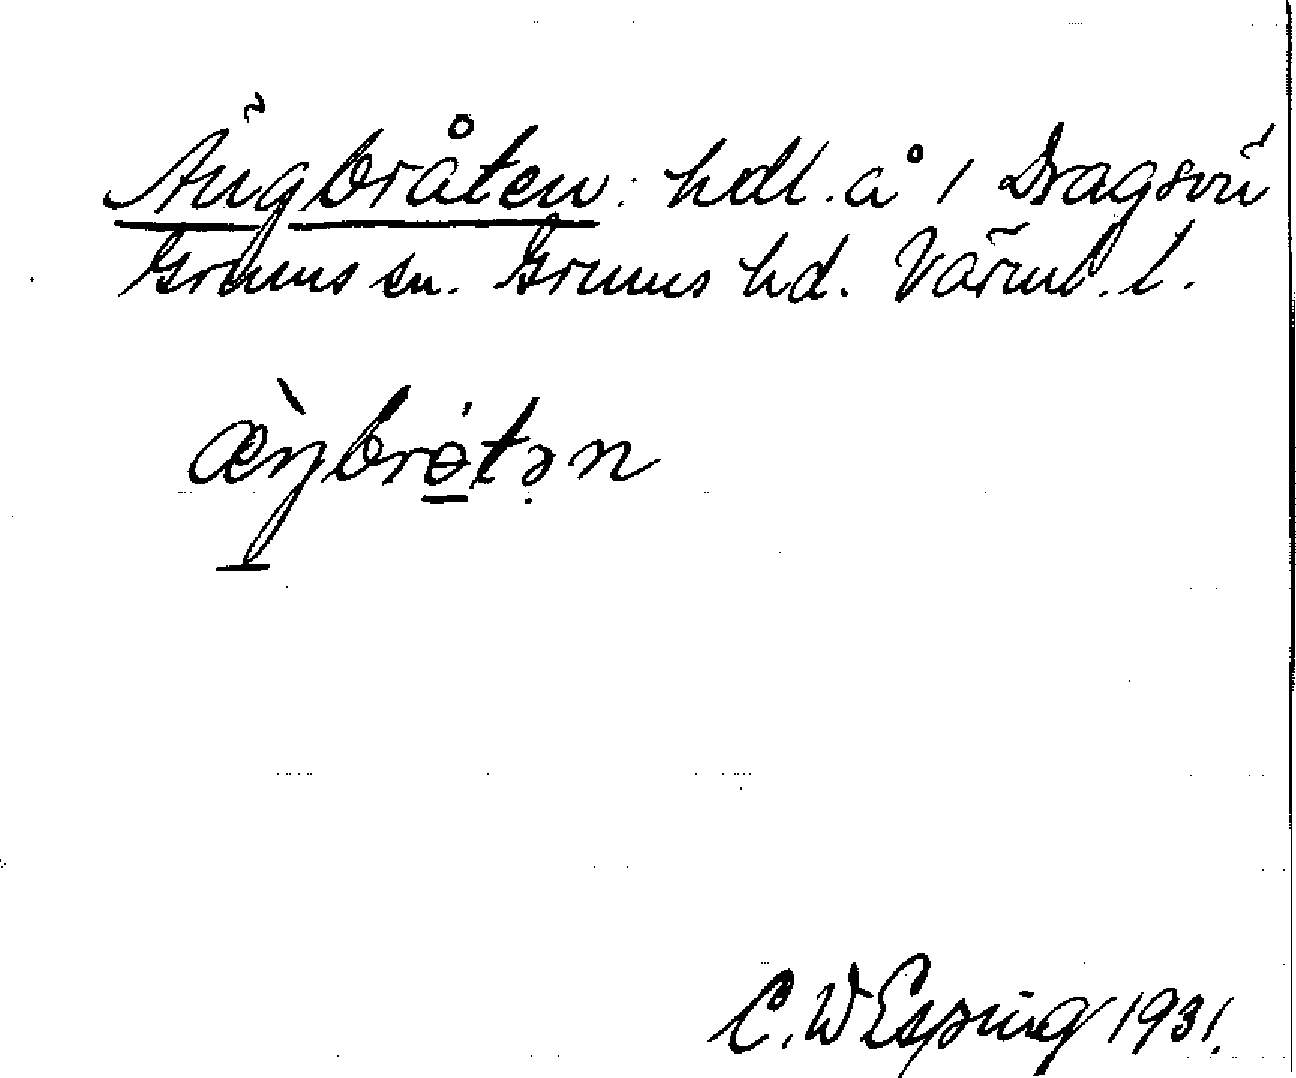 Ängbråten: hdl. å 1 Dragsvn
Grums sn. Grums hd. Värml. l.
æ̀ŋbrɵ́tən
C. W Esping 1931.